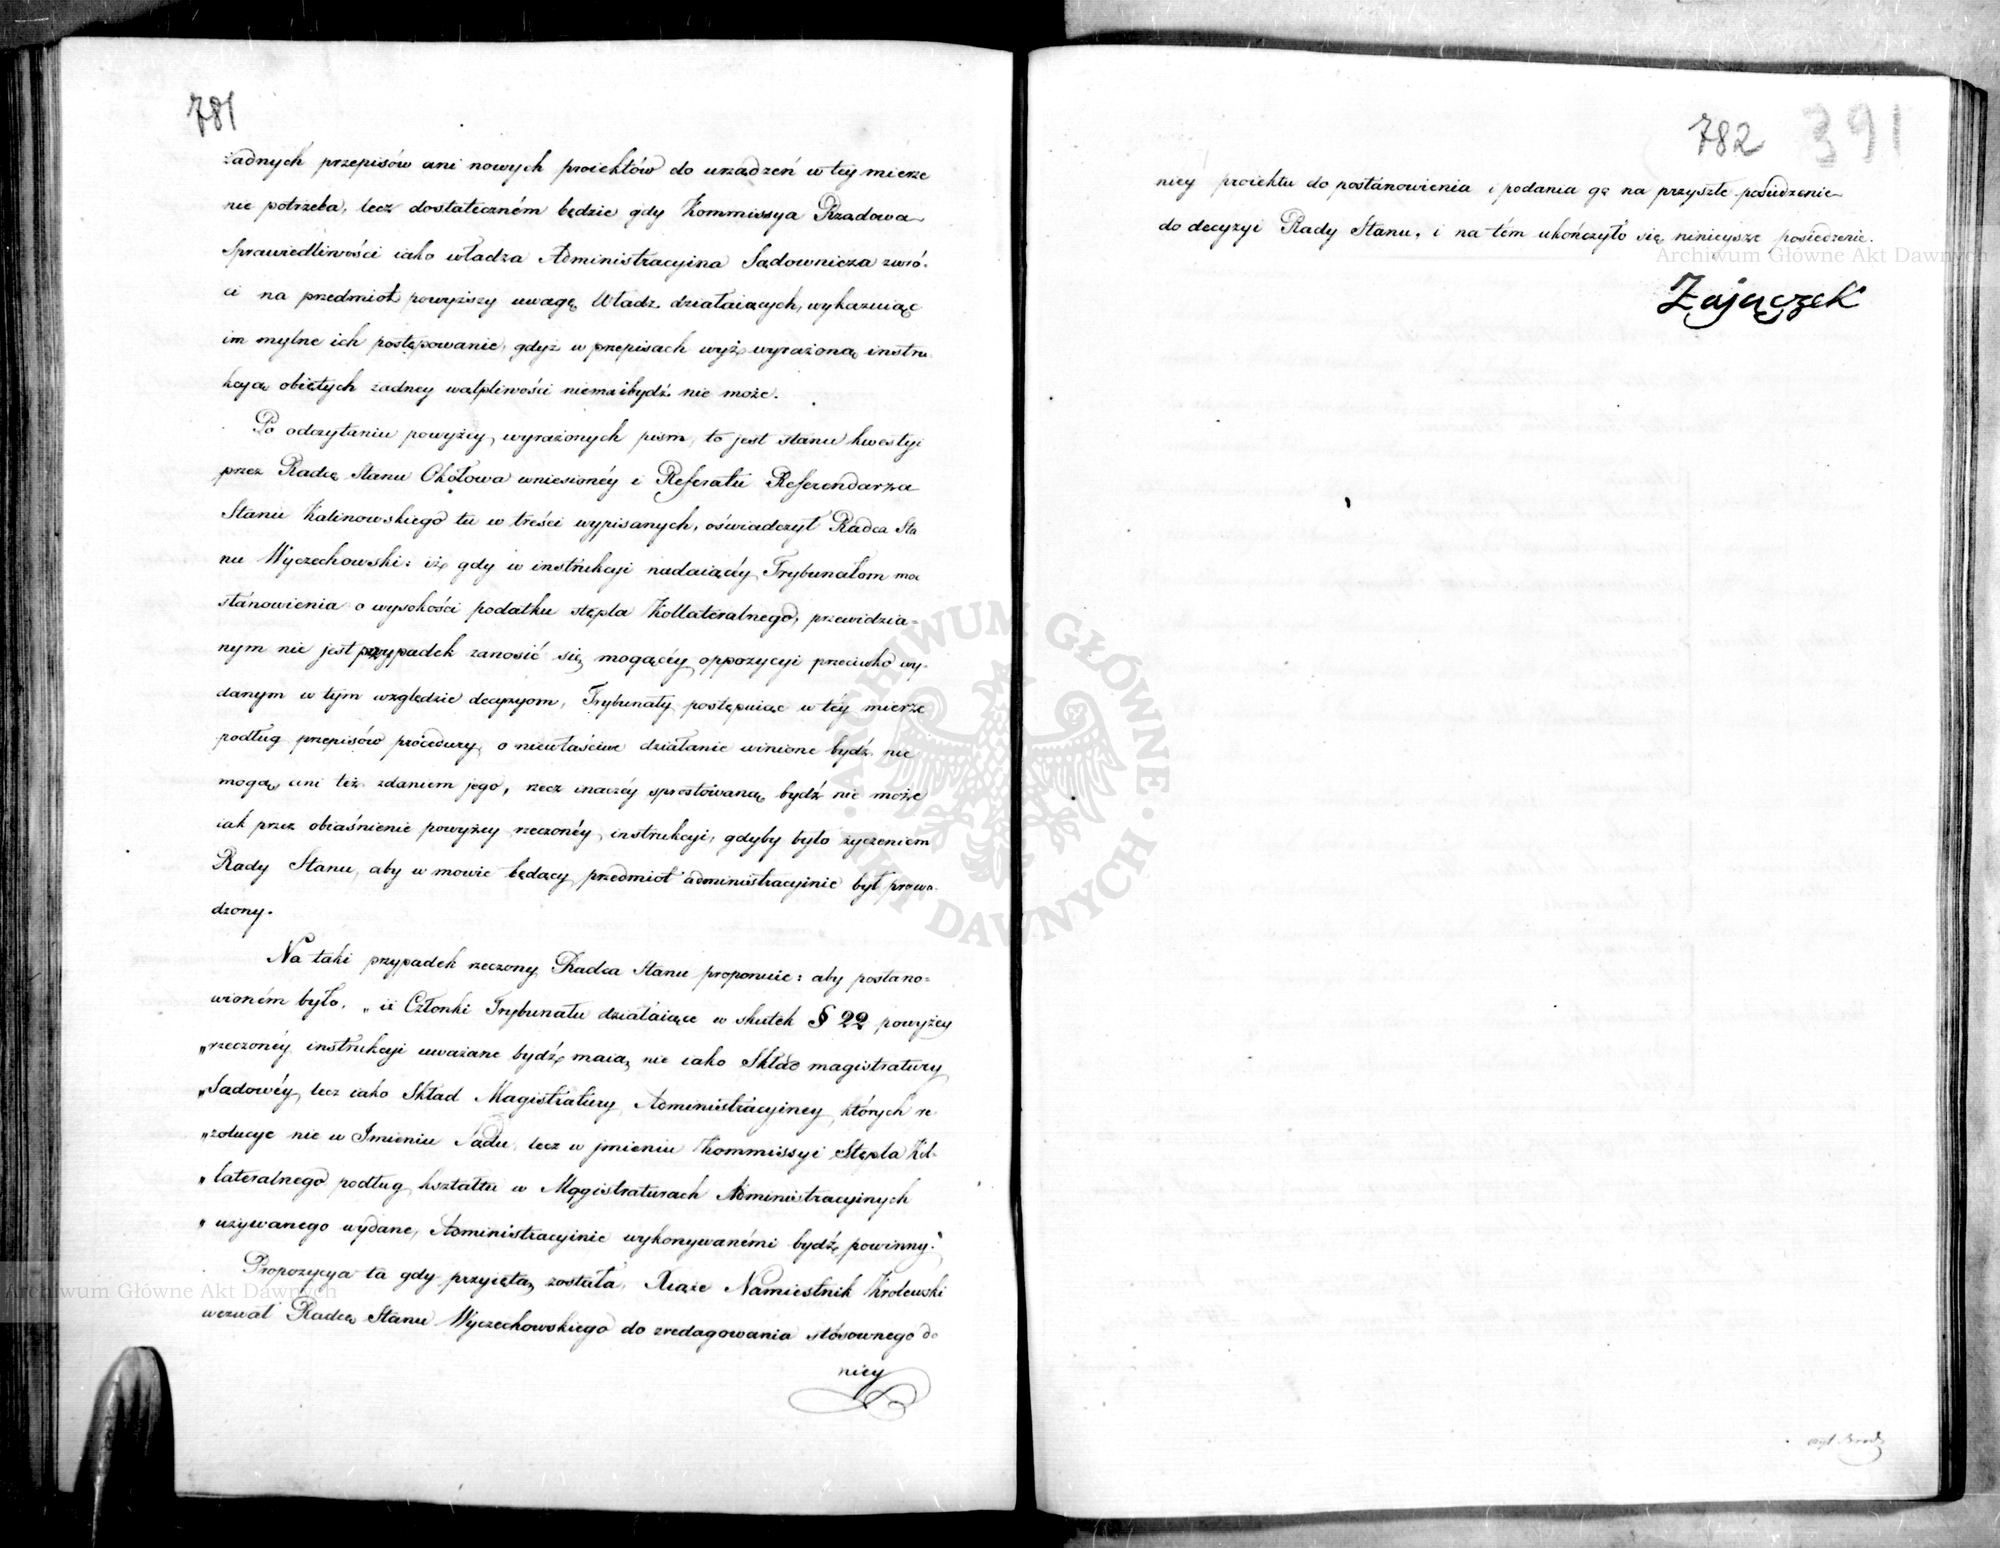 781
żadnych przepisów ani nowych proiektów do urządzeń w tey mierze
nie potrzeba, lecz dostateczném będzie gdy Kommissya Rządowa
Sprawiedliwości iako władza Administracyina Sądownicza zwró-
ci na przedmiot powyższy uwagę Władz działaiących, wykazuiąc
im mylne ich postępowanie, gdyż w przepisach wyż wyrażoną instru
kcyą obiętych żadney wątpliwości niema i bydź nie może.
Po odczytaniu powyżey wyrażonych pism, to jest stanu kwestyi
przez Radcę Stanu Okołowa wniesionéy i Referatu Referendarza
Stanu Kalinowskiego tu w treści wypisanych, oświadczył Radca Sta
nu Wyczechowski: iż gdy w instrukcyi nadaiącéy Trybunałom mo
stanowienia o wysokości podatku stępla Kollateralnego, przewidzia-
nym nie jest przypadek zanosić się mogącéy oppozycyi przeciwko wy-
danym w tym względzie decyzyom, Trybunały postępuiąc w téy mierze
podług przepisów procedury, o niewłaściwe działanie winione bydź nie
mogą, ani też zdaniem jego, rzecz inaczéy sprostowaną bydź nie może
iak przez obiaśnienie powyżey rzeczonéy instrukcyi, gdyby było życzeniem
Rady Stanu, aby w mowie będący przedmiot administracyinie był prowa-
dzony.
Na taki przypadek rzeczony Radca Stanu proponuie: aby postano-
wioném było, „iż Członki Trybunału działaiące w skutek § 22 powyżey
„rzeczonéy instrukcyi uważane bydź maią nie iako Skład magistratury
„Sądowéy, lecz iako Skład Magistratury Administracyiney, których re-
„zolucye nie w Imieniu Sądu, lecz w jmieniu Kommissyi Stępla Kol-
„lateralnego podług kształtu w Magistraturach Administracyinych
„używanego wydane, Administracyinie wykonywanémi bydź powinny."
Propozycya ta gdy przyiętą została, Xiąże Namiestnik Krolewski
wezwał Radcę Stanu Wyczechowskiego do zredagowania stósownego do
niey
782 391
niey proiektu do postanowienia i podania go na przyszłe posiedzenie
do decyzyi Rady Stanu, i na tém ukończyło się ninieysze posiedzenie.
Zajączek
Archiwum Główne Akt Dawnych
Archiwum Główne Akt Dawnych
ARCHIWUM GŁÓWNE AKT DAWNYCH